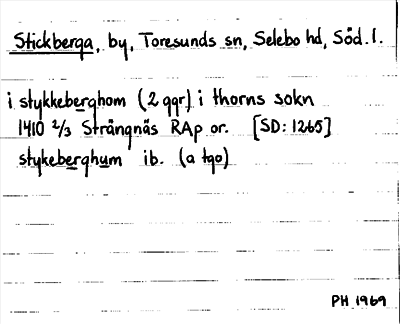 Stickberga, by, Toresunds sn, Selebo hd, Söd. l.
i stykkeberghom (2 ggr) i thorns sokn
1410 2/3 Strängnäs RAp or. [SD: 1265]
stykeberghum ib. (a tgo)
PH 1969